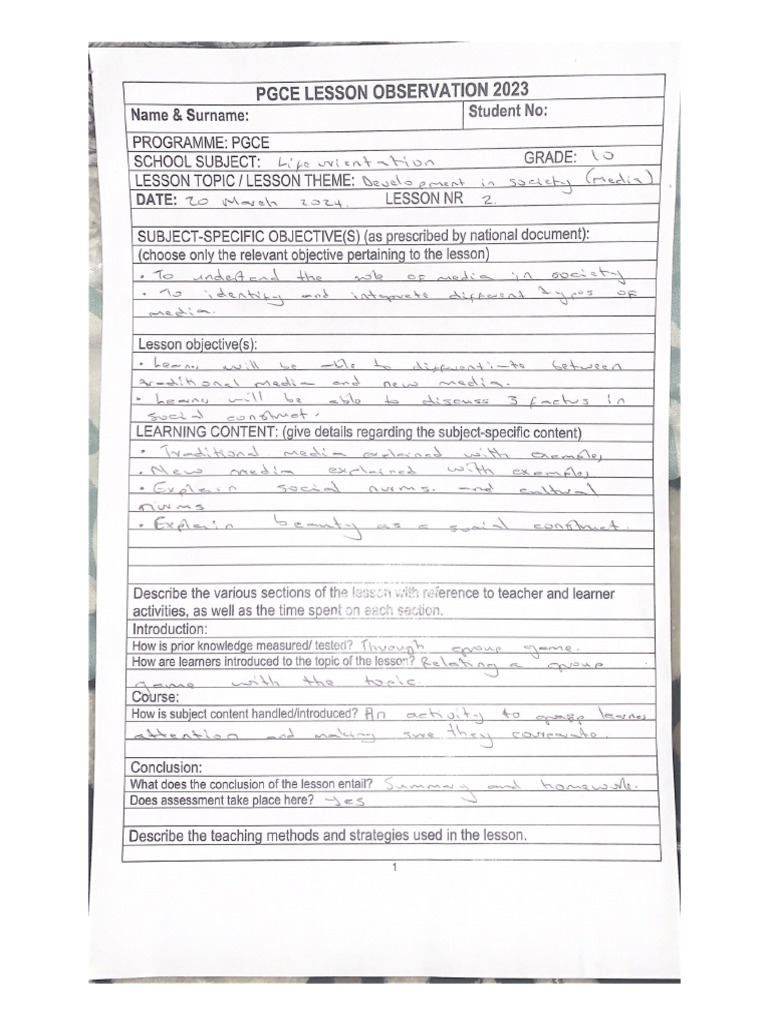 PGCE LESSON OBSERVATION 2023
Name & Surname: Student No:
PROGRAMME: PGCE
SCHOOL SUBJECT: Life orientation GRADE: 10
LESSON TOPIC / LESSON THEME: Development in society (media)
DATE: 20 March 2024. LESSON NR 2.
SUBJECT-SPECIFIC OBJECTIVE(S) (as prescribed by national document):
(choose only the relevant objective pertaining to the lesson)
• To understand the role of media in society
• To identity and interprete different types of
media.
Lesson objective(s):
• will be able to differentiate between
traditional media and new media.
• will be able to discuss 3 factus in
social construct.
LEARNING CONTENT: (give details regarding the subject-specific content)
• Traditional media explained with examples
• New media explained with examples
• Explain social norms. and cultural
norms
• Explain beauty as a social construct.
Describe the various sections of the lesson with reference to teacher and learner
activities, as well as the time spent on each section.
Introduction:
How is prior knowledge measured/ tested? Through group game.
How are learners introduced to the topic of the lesson? Relating a group
game with the topic.
Course:
How is subject content handled/introduced? An activity to grasp
attention and making sure they
Conclusion:
What does the conclusion of the lesson entail? Summary and homework.
Does assessment take place here? Yes
Describe the teaching methods and strategies used in the lesson.
1